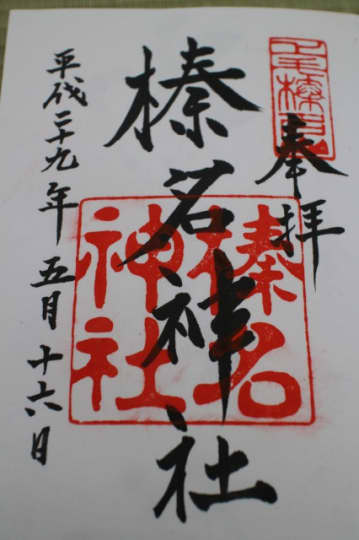 上毛榛名
奉拝
榛名神社
榛名
神社
平成二十九年 五月 十六日